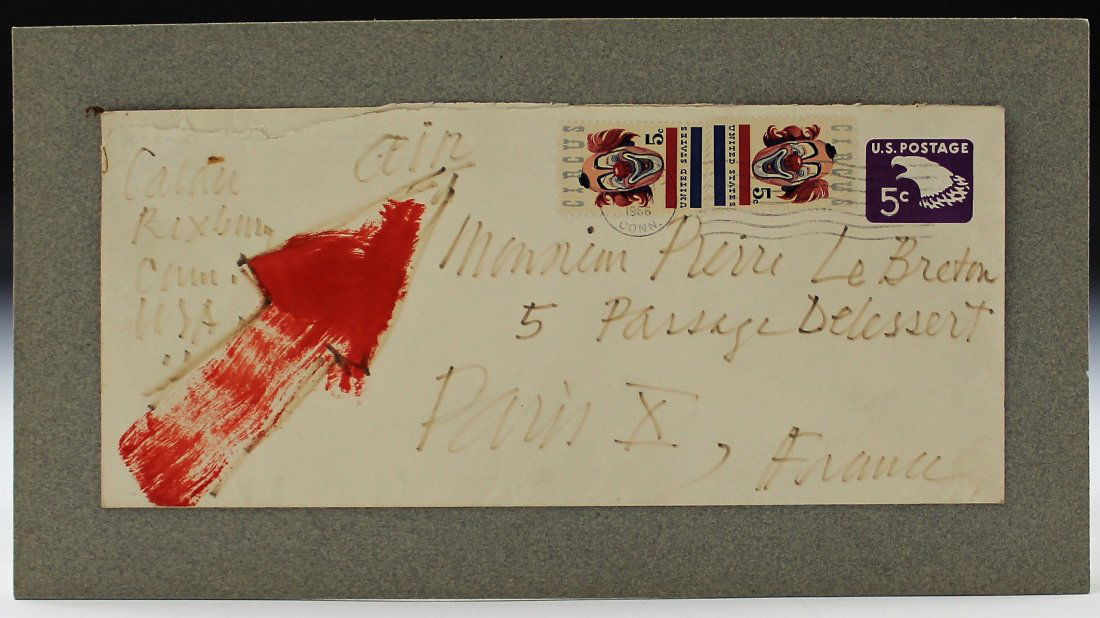 air
Calder
Roxbury
Conn.
USA
CIRCUS
5c
UNITED STATES
UNITED STATES
5c
CIRCUS
U.S. POSTAGE
5c
1966
CONN.
Monsieur Pierre Le Breton
5 Passage Delessert
Paris X,
France